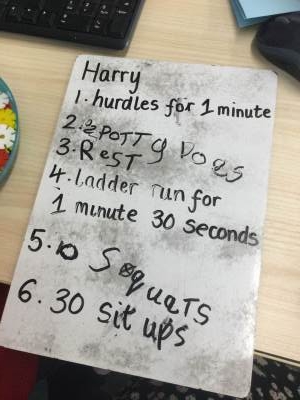 Harry
1. hurdles for 1 minute
2. SPOTTY DOGS
3. ReST
4. Ladder run for
1 minute 30 seconds
5. 10 SequaTS
6. 30 sit ups